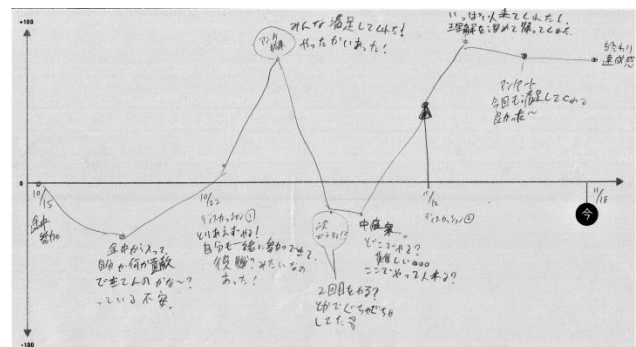 +100
みんな満足してくれた!
やったかいあった!
アンケ
結果
いっぱい人来てくれたし、
理解を深めて帰ってくれた
終わり
達成感
アンケート
今回も満足してくれて
良かった〜
0
10/15
途中
参加
途中から入って、
自分が何か貢献
できてんのかな〜?
っている不安。
10/22
ディスカッション①
とりあえずやる!
自分も一緒に参加できて、
役職?みたいなの
あった!
次
どうする!?
2回目をやる?
とかでぐちゃぐちゃ
してた
中庭案。
どこでやる?
難しい。。。
ここでやって人来る?
11/12
ディスカッション②
11/18
今
-100